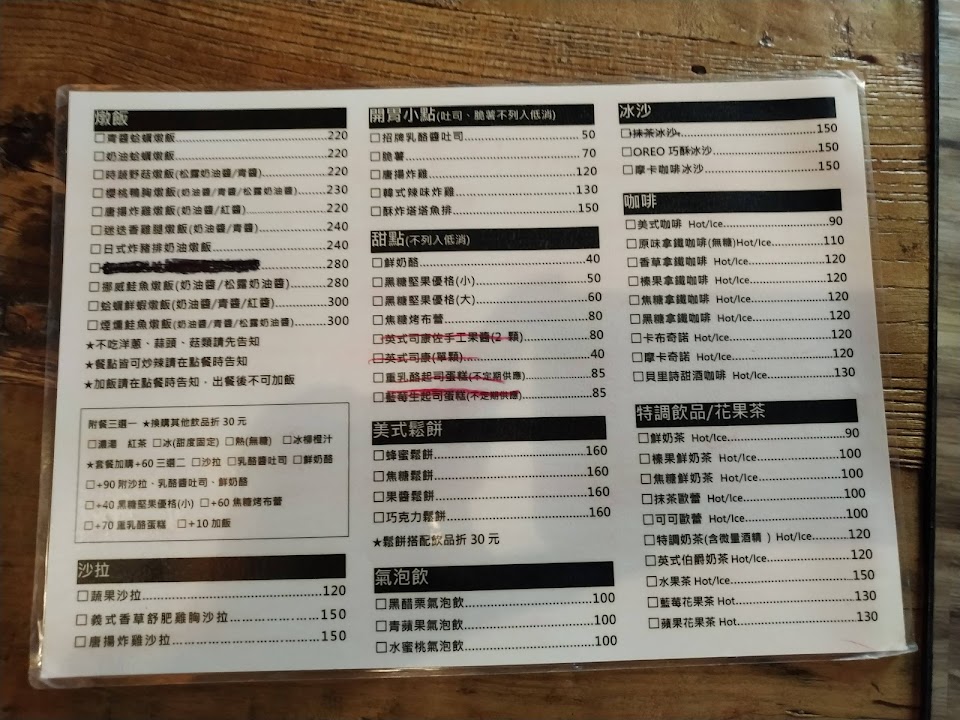 燉飯
□青醬蛤蠣燉飯 220
□奶油蛤蠣燉飯 220
□時蔬野菇燉飯(松露奶油醬/青醬) 220
□櫻桃鴨胸燉飯(奶油醬/青醬/松露奶油醬) 230
□唐揚炸雞燉飯(奶油醬/紅醬) 220
□迷迭香雞腿燉飯(奶油醬/青醬) 240
□日式炸豬排奶油燉飯 240
□ 280
□挪威鮭魚燉飯(奶油醬/松露奶油醬) 280
□蛤蠣鮮蝦燉飯(奶油醬/青醬/紅醬) 300
□煙燻鮭魚燉飯(奶油醬/青醬/松露奶油醬) 300
★不吃洋蔥、蒜頭、菇類請先告知
★餐點皆可炒辣請在點餐時告知
★加飯請在點餐時告知，出餐後不可加飯
附餐三選一 ★換購其他飲品折 30 元
□濃湯 紅茶 □冰(甜度固定) □熱(無糖) □冰柳橙汁
★套餐加購+60 三選二 □沙拉 □乳酪醬吐司 □鮮奶酪
□+90 附沙拉、乳酪醬吐司、鮮奶酪
□+40 黑糖堅果優格(小) □+60 焦糖烤布蕾
□+70 重乳酪蛋糕 □+10 加飯
沙拉
□蔬果沙拉 120
□義式香草舒肥雞胸沙拉 150
□唐揚炸雞沙拉 150
開胃小點(吐司、脆薯不列入低消)
□招牌乳酪醬吐司 50
□脆薯 70
□唐揚炸雞 120
□韓式辣味炸雞 130
□酥炸塔塔魚排 150
甜點(不列入低消)
□鮮奶酪 40
□黑糖堅果優格(小) 50
□黑糖堅果優格(大) 60
□焦糖烤布蕾 80
□英式司康佐手工果醬(2 顆) 80
□英式司康(單顆) 40
□重乳酪起司蛋糕(不定期供應) 85
□藍莓生起司蛋糕(不定期供應) 85
美式鬆餅
□蜂蜜鬆餅 160
□焦糖鬆餅 160
□果醬鬆餅 160
□巧克力鬆餅 160
★鬆餅搭配飲品折 30 元
氣泡飲
□黑醋栗氣泡飲 100
□青蘋果氣泡飲 100
□水蜜桃氣泡飲 100
冰沙
□抹茶冰沙 150
□OREO 巧酥冰沙 150
□摩卡咖啡冰沙 150
咖啡
□美式咖啡 Hot/Ice 90
□原味拿鐵咖啡(無糖)Hot/Ice 110
□香草拿鐵咖啡 Hot/Ice 120
□榛果拿鐵咖啡 Hot/Ice 120
□焦糖拿鐵咖啡 Hot/Ice 120
□黑糖拿鐵咖啡 Hot/Ice 120
□卡布奇諾 Hot/Ice 120
□摩卡奇諾 Hot/Ice 120
□貝里詩甜酒咖啡 Hot/Ice 130
特調飲品/花果茶
□鮮奶茶 Hot/Ice 90
□榛果鮮奶茶 Hot/Ice 100
□焦糖鮮奶茶 Hot/Ice 100
□抹茶歐蕾 Hot/Ice 100
□可可歐蕾 Hot/Ice 100
□特調奶茶(含微量酒精 ) Hot/Ice 120
□英式伯爵奶茶 Hot/Ice 120
□水果茶 Hot/Ice 150
□藍莓花果茶 Hot 130
□蘋果花果茶 Hot 130